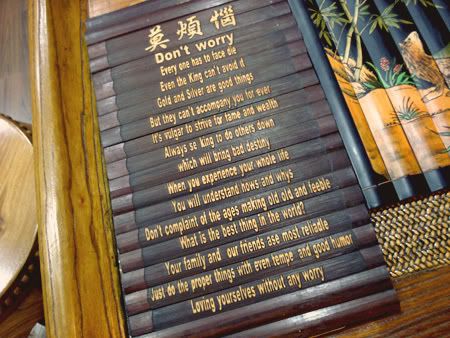 莫煩惱
Don't worry
Every one has to face die
Even the King can't avoid it
Gold and Silver are good things
But they can't accompany you for ever
It's vulgar to strive for fame and wealth
Always se king to do others down
which will bring bad destiny
When you experience your whole life
You will understand hows and whys
Don't complaint of the ages making old old and feeble
What is the best thing in the world?
Your family and our friends ase most reliable
Just do the proper things with even tempe and good humor
Loving yourselves without any worry